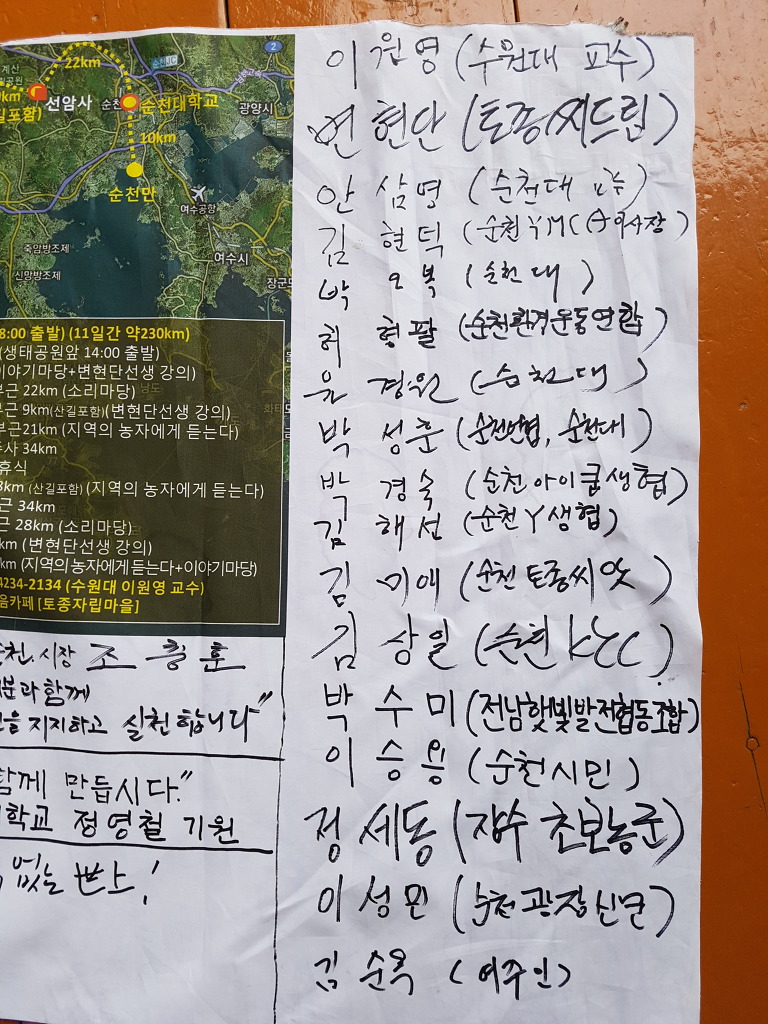 22km
선암사
순천JC
2
순천
순천대학교
광양시
10km
순천만
여수공항
죽암방조제
여수시
신망방조제
장군도
8:00 출발) (11일간 약230km)
(생태공원앞 14:00 출발)
이야기마당+변현단선생 강의)
부근 22km (소리마당)
부근 9km(산길포함)(변현단선생 강의)
부근21km (지역의 농자에게 듣는다)
사 34km
휴식
8km (산길포함) (지역의 농자에게 듣는다)
근 34km
근 28km (소리마당)
km (변현단선생 강의)
km (지역의농자에게 듣는다+이야기마당)
4234-2134 (수원대 이원영 교수)
음카페 [토종자립마을]
순천.시장 조충훈
분과 함께
을 지지하고 실천합니다"
함께 만듭시다."
학교 정영철 기원
없는 세상!
이원영 (수원대 교수)
변현단 (토종씨드림)
안삼영 (순천대 교수)
김현덕 (순천YMCA이사장)
박오복 (순천대)
허형팔 (순천환경운동연합)
윤경원 (순천대)
박성훈 (순천언협, 순천대)
박경숙 (순천아이쿱생협)
김해선 (순천Y생협)
김미애 (순천토종씨앗)
김상일 (순천KYC)
박수미 (전남햇빛발전협동조합)
이승용 (순천시민)
정세동 (장수 초보농군)
이성민 (순천광장신문)
김순옥 (여주인)